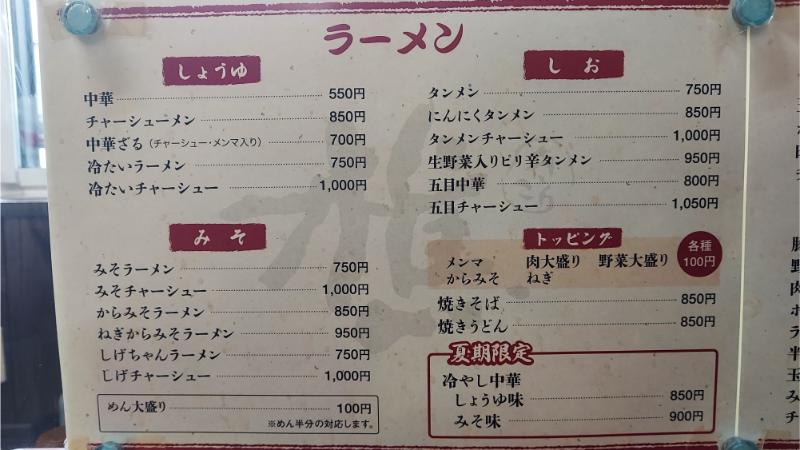 ラーメン
しょうゆ
中華 550円
チャーシューメン 850円
中華ざる（チャーシュー・メンマ入り） 700円
冷たいラーメン 750円
冷たいチャーシュー 1,000円
みそ
みそラーメン 750円
みそチャーシュー 1,000円
からみそラーメン 850円
ねぎからみそラーメン 950円
しげちゃんラーメン 750円
しげチャーシュー 1,000円
めん大盛り 100円
※めん半分の対応します。
しお
タンメン 750円
にんにくタンメン 850円
タンメンチャーシュー 1,000円
生野菜入りピリ辛タンメン 950円
五目中華 800円
五目チャーシュー 1,050円
トッピング
各種
100円
メンマ 肉大盛り 野菜大盛り
からみそ ねぎ
焼きそば 850円
焼きうどん 850円
夏期限定
冷やし中華
しょうゆ味 850円
みそ味 900円